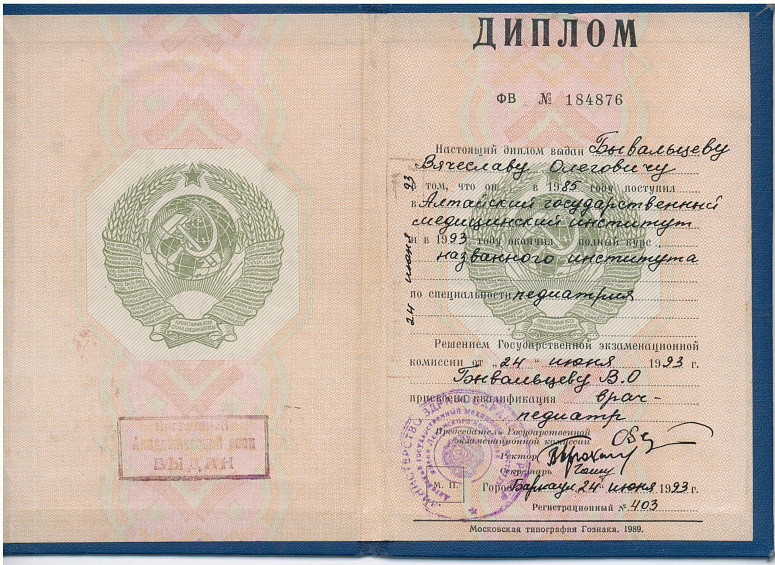 ДИПЛОМ
ФВ № 184876
Настоящий диплом выдан Бывальцеву
Вячеславу Олеговичу
в том, что он в 1985 году поступил
в Алтайский государственный
медицинский институт
и в 1993 году окончил полный курс
названного института
по специальности педиатрия
Решением Государственной экзаменационной
комиссии от „24“ июня 1993 г.
Бывальцеву В.О
присвоена квалификация врач-
педиатр
Председатель Государственной
экзаменационной комиссии
Ректор
Секретарь
М. П.
Город Барнаул „24“ июня 1993 г.
Регистрационный № 403
Московская типография Гознака. 1989.
24 июня 93
ВЫДАН